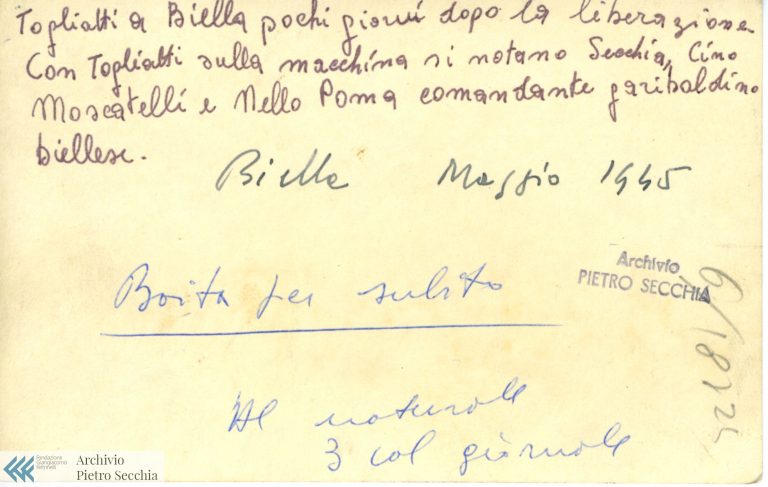 Togliatti a Biella pochi giorni dopo la liberazione.
Con Togliatti sulla macchina si notano Secchia, Cino
Moscatelli e Nello Poma comandante garibaldino
biellese.
Biella Maggio 1945
Boita per subito
Archivio
PIETRO SECCHIA
Al naturale
3 col giornale
Fondazione
Giangiacomo
Feltrinelli
Archivio
Pietro Secchia